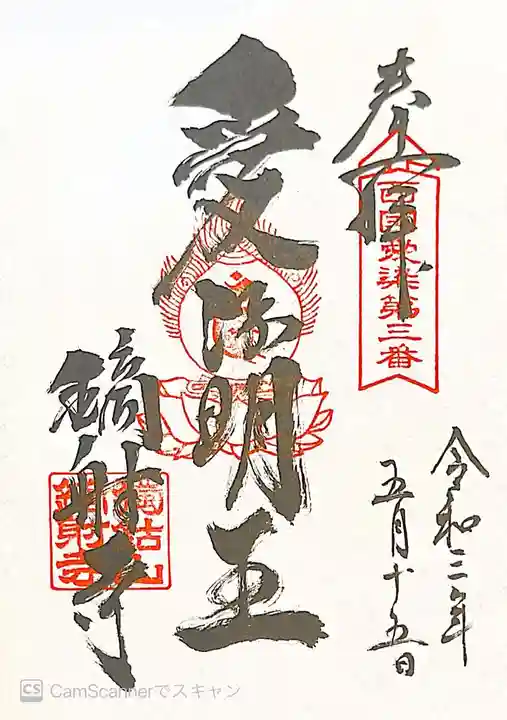 奉拝
西國愛染第三番
愛染明王
鏑射寺
獨鈷山
鏑射寺
令和二年
五月十五日
CS CamScannerでスキャン